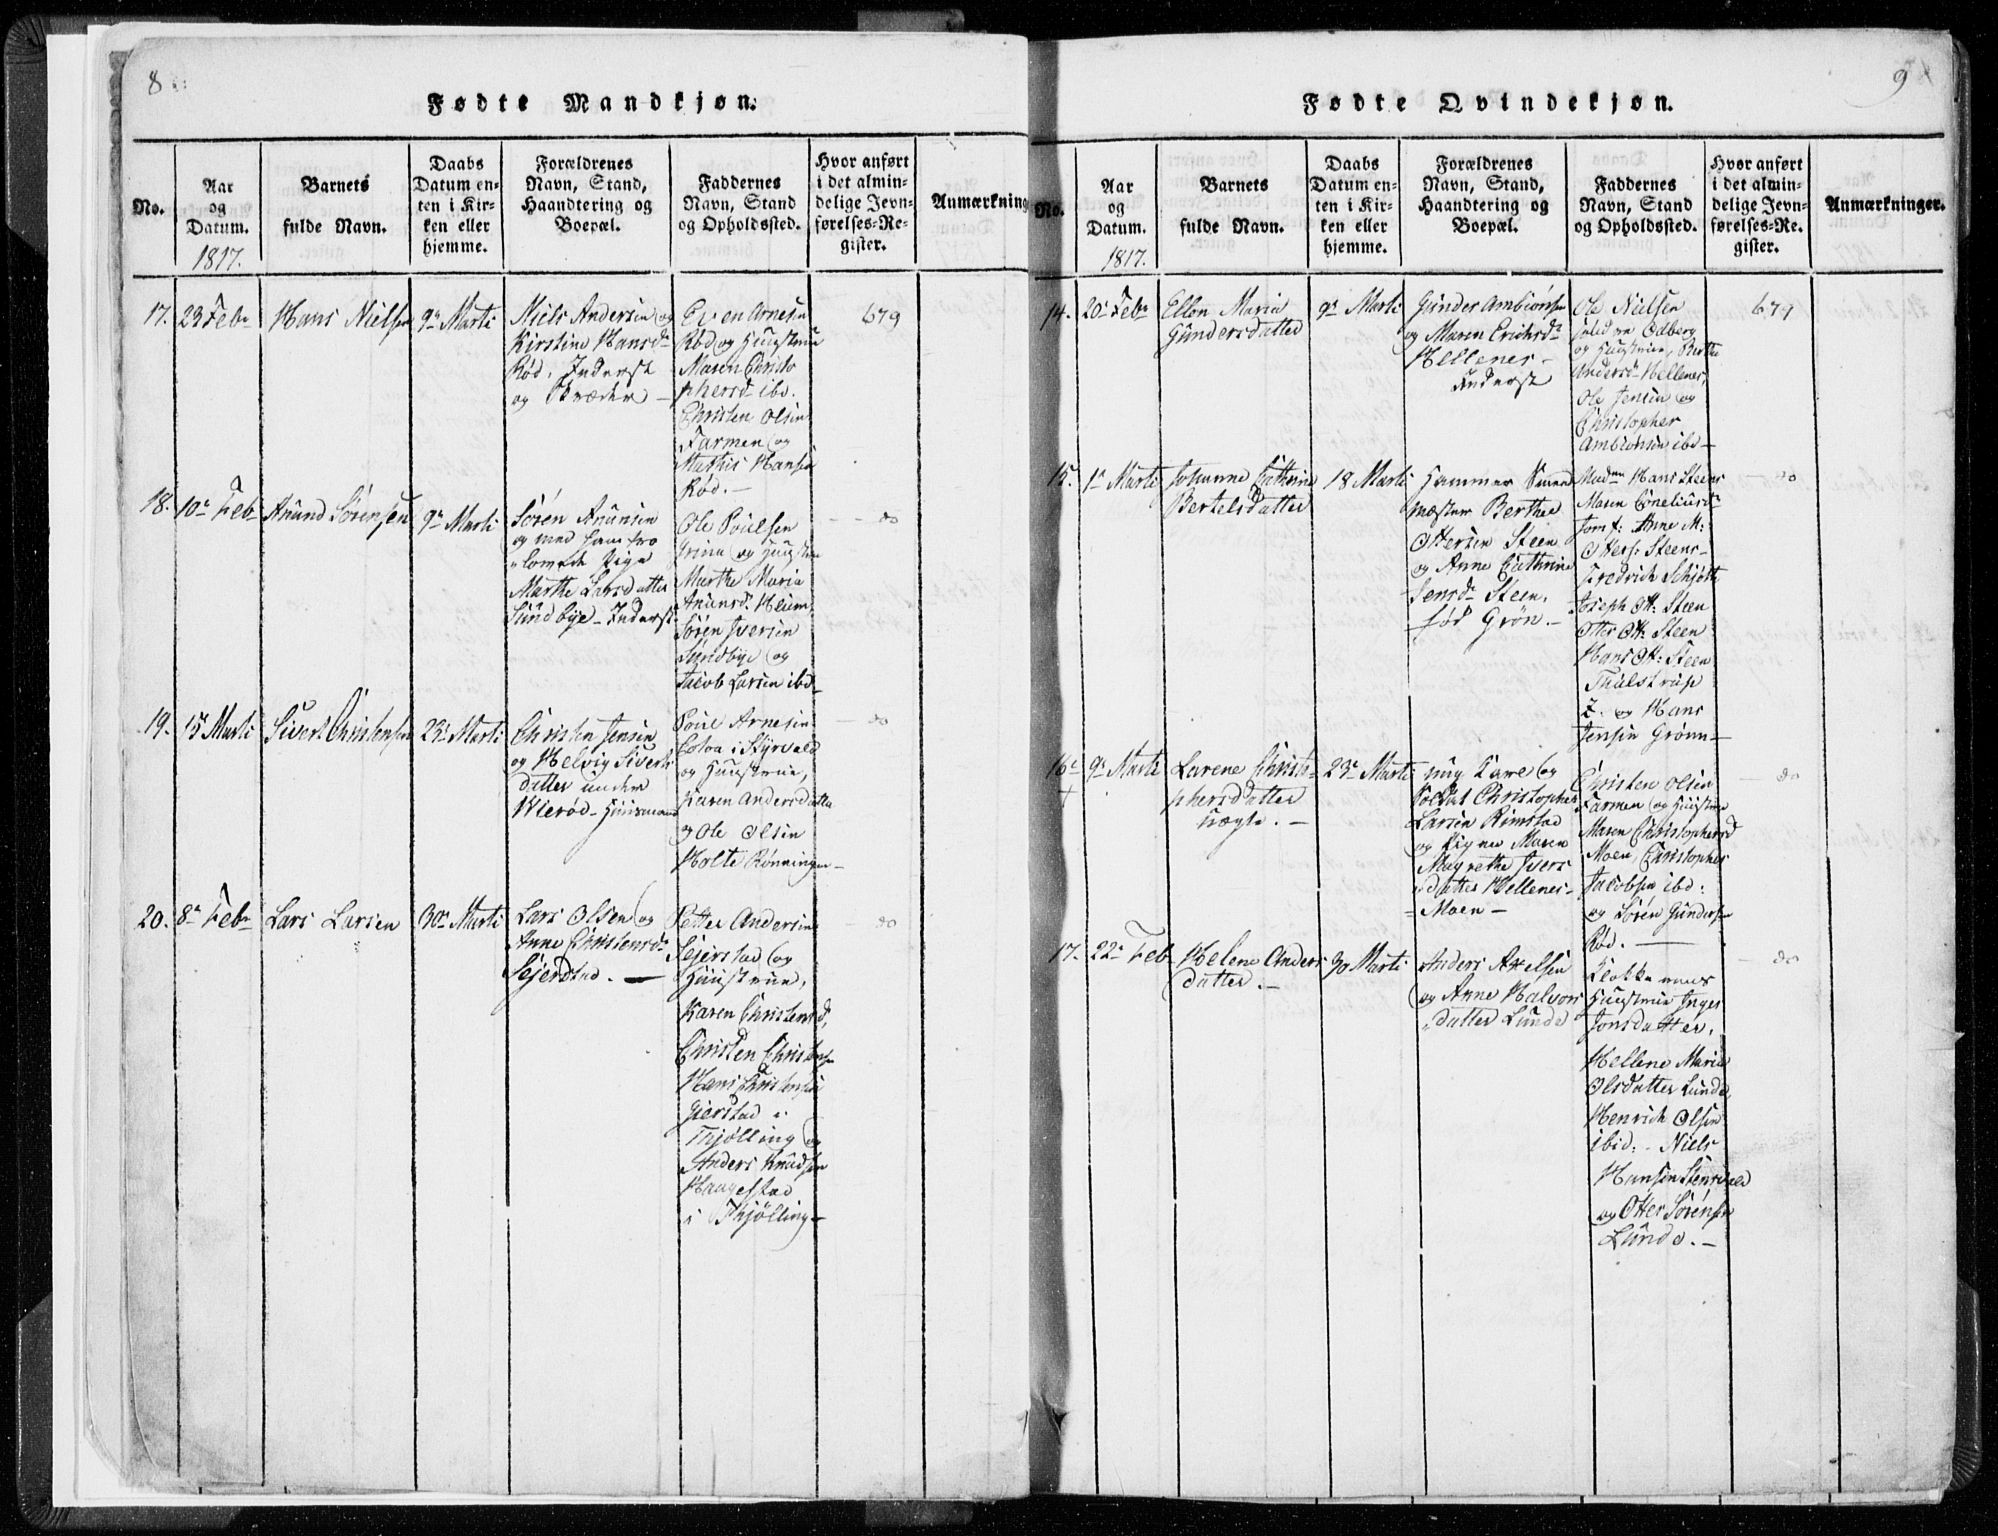 8
Fødte Mandkjøn.
No.
Aar
og
Datum.
1817.
Barnets
fulde Navn.
Daabs
Datum en-
ten i Kir-
ken eller
hjemme.
Forældrenes
Navn, Stand,
Haandtering og
Boepæl.
Faddernes
Navn, Stand
og Opholdssted.
Hvor anført
i det almin-
delige Jevn-
førelses-Re-
gister.
Anmærkning
17.
23 Febr
Hans Nielsen
9de Marti
Niels Andersen og
Kirstine Hansdr
Rød, Inderst
og Skræder –
Even Arnesen
Rød og Huustrue
Maren Christo
phersdr ibd.
Christen Olsen
Farmen og
Mathis Hansen
Rød. –
679
18.
10de Feb
Anund Sörensen
9de Marti
Sören Anunsen
og med ham tro
lovede Pige
Marthe Larsdatter
Sundbye – Inderst
Ole Poulsen
og Huustrue
Marthe Maria
Anunsdr
Sören Iversen
Sundbye og
Jacob Larsen ibd –
do
19.
15de Marti
Sivert Christensen
23de Marti
Christen Jensen
og Helvig Siverts
datter under
Wierød – Huusmand
Poul Arnesen
i Styrvold
og Huustrue,
Karen Andersdatter
og Ole Olsen
Holte Rønningen –
do
20.
8de Feb
Lars Larsen
30te Marti
Lars Olsen og
Anne Christensdr
Sejerstad. –
Petter Andersen
Sejerstad og
Huustrue,
Karen Christensd,
Christen Christensen
Hans Christensen
Gierstad i
Thjølling og
Anders Knudsen
Haugestad
i Thjølling –
do
9
Fødte Qvindekjøn.
No.
Aar
og
Datum.
1817.
Barnets
fulde Navn.
Daabs
Datum en-
ten i Kir-
ken eller
hjemme.
Forældrenes
Navn, Stand,
Haandtering og
Boepæl.
Faddernes
Navn, Stand
og Opholdssted.
Hvor anført
i det almin-
delige Jevn-
førelses-Re-
gister.
Anmærkninger.
14.
20de Febr
Ellen Maria
Gundersdatter
9de Marti
Gunder Ambiönsen
og Maren Erichsdr
Hellenes –
Inderst
Ole Nielsen
Odberg
og Huustrue, Berthe
Andersdr Hellenes,
Ole Jensen og
Christopher
Ambiönsen ibd –
679
15.
1te Marti
Johanne Cathrine
Bertelsdatter
18 Marti
Hammer Smed
mester Berthel
Ottersen Steen
og Anne Cathrine
Jensdr Steen,
fød Grön. –
Madme Hans Steens
Maren Corneliusdr
Jomf: Anne M:
Otters: Steens –
Fredrich Schjøtt
Joseph Ott: Steen
Otter Ott: Steen
Hans Ott: Steen
Thulstrup
og Hans
Jensen Grönn –
do
16de
+
9de Marti
Larene Christo-
phersdatter
uægte. –
23de Marti
ung Karl og
Soldat Christopher
Larsen Rimstad
og Pigen Maren
Magrethe Ivers
datter Hellenes-
Moen –
Christen Olsen
Farmen og Huustrue
Maren Christophersd
Moen, Christopher
Jacobsen ibd:
og Sören Gundersen
Rød. –
do
17.
22de Feb
Helene Anders
datter. –
30 Marti
Anders Axelsen
og Anne Halvors
datter Lunde
Klokkerens
Huustrue Inger
Jonsdatter,
Hellene Maria
Olsdatter Lunde,
Henrich Olsen
ibid: – Niels
Hansen Stensvold
og Otter Sörensen
Lunde. –
do